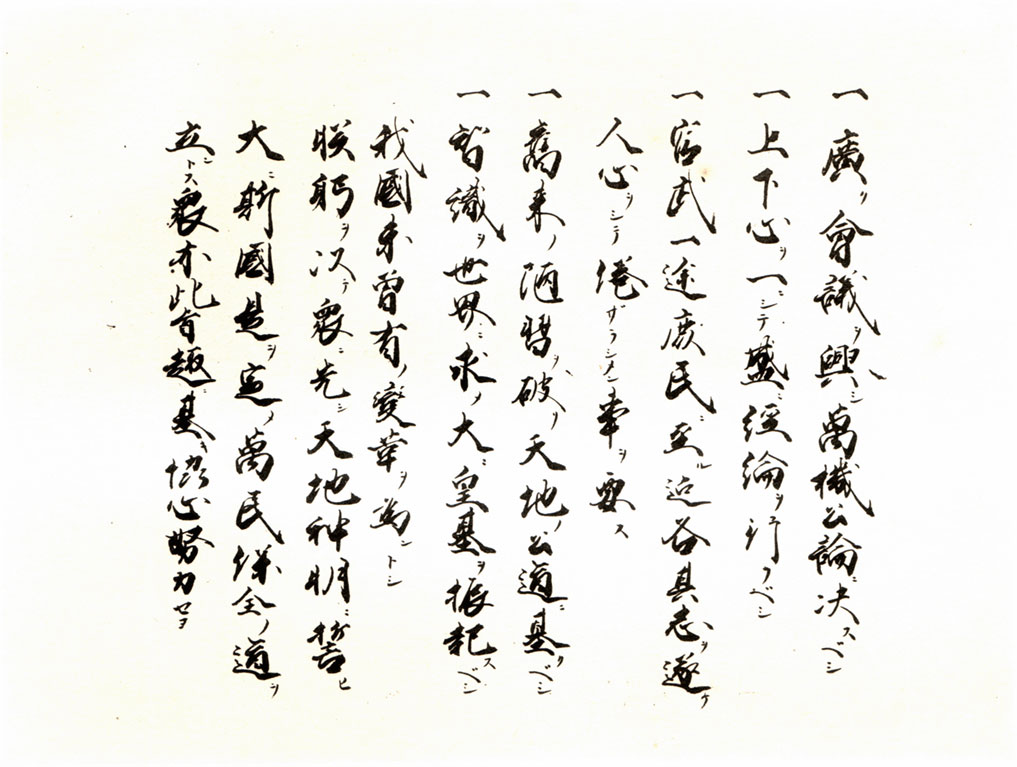 一 廣ク會議ヲ興シ萬機公論ニ決スベシ
一 上下心ヲ一ニシテ盛ニ經綸ヲ行フベシ
一 官武一途庶民ニ至ル迄各其志ヲ遂ケ
人心ヲシテ倦ザラシメン事ヲ要ス
一 舊来ノ陋習ヲ破リ天地ノ公道ニ基クベシ
一 智識ヲ世界ニ求メ大ニ皇基ヲ振起スベシ
我國未曽有ノ變革ヲ為ントシ
朕躬ヲ以テ衆ニ先シ天地神明ニ誓ヒ
大ニ斯國是ヲ定メ萬民保全ノ道ヲ
立ントス衆亦此旨趣ニ基キ協心努力セヨ